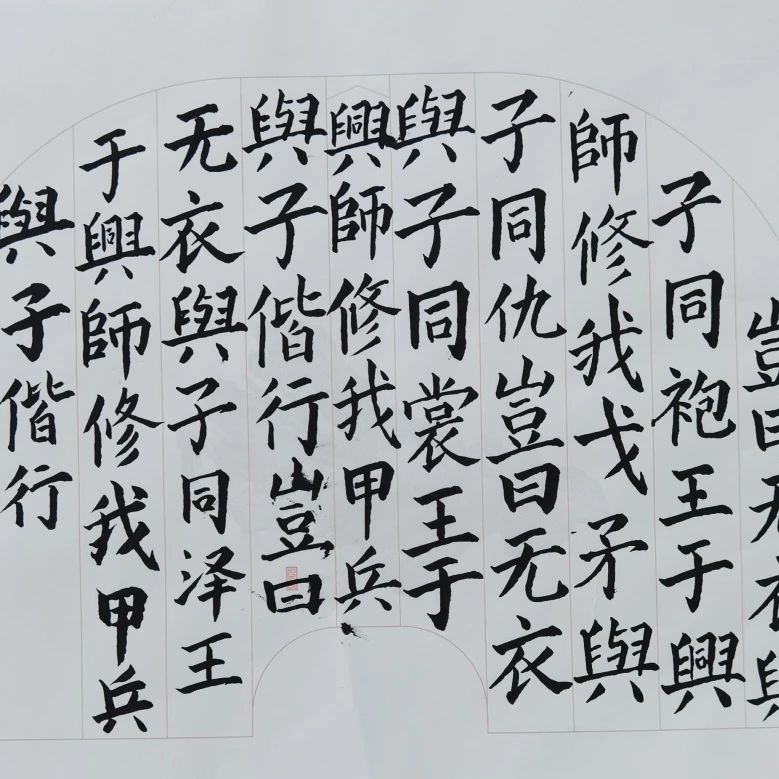 豈曰无衣與
子同袍王于興
師修我戈矛與
子同仇豈曰无衣
與子同裳王于
興師修我甲兵
與子偕行豈曰
无衣與子同泽王
于興師修我甲兵
與子偕行